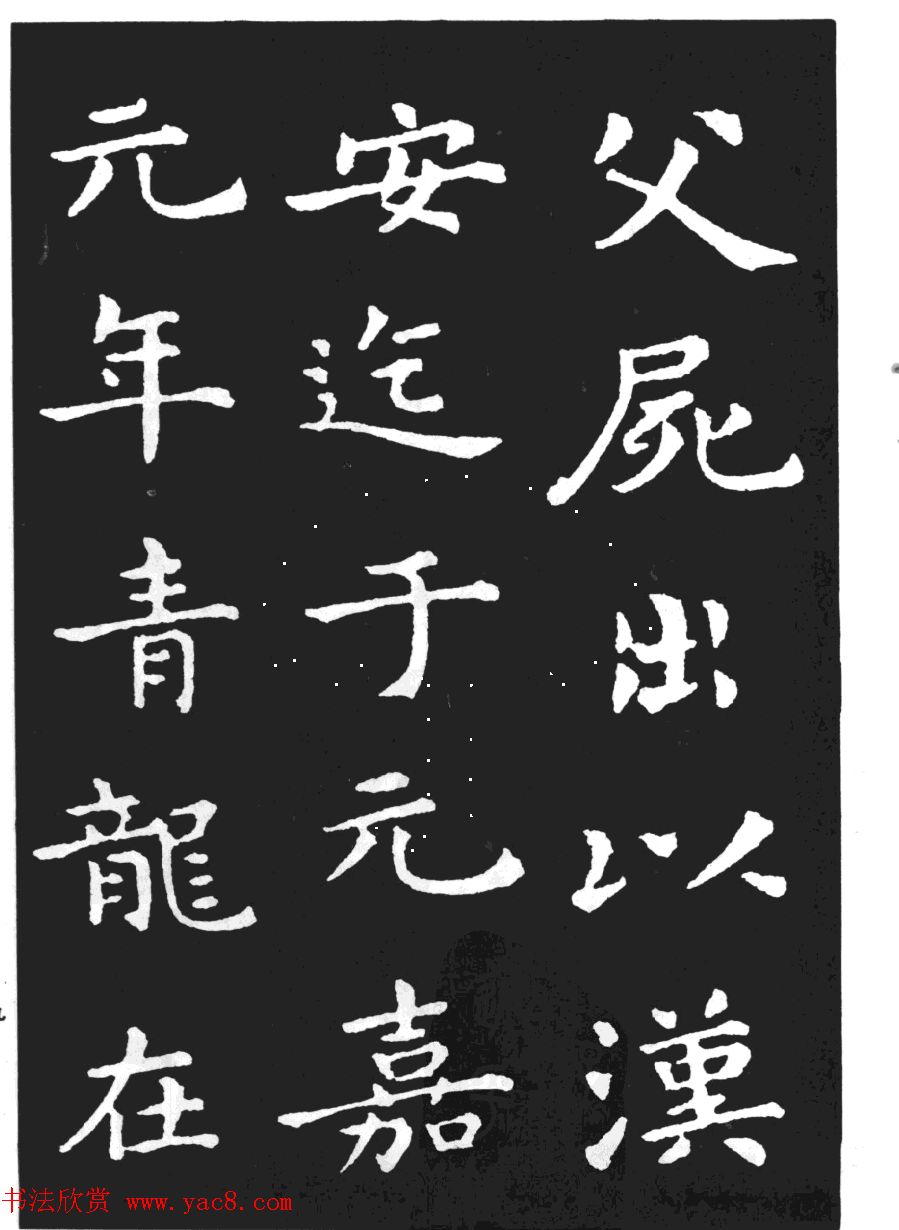 父屍出以漢
安迄于元嘉
元年青龍在
书法欣赏 www.yac8.com